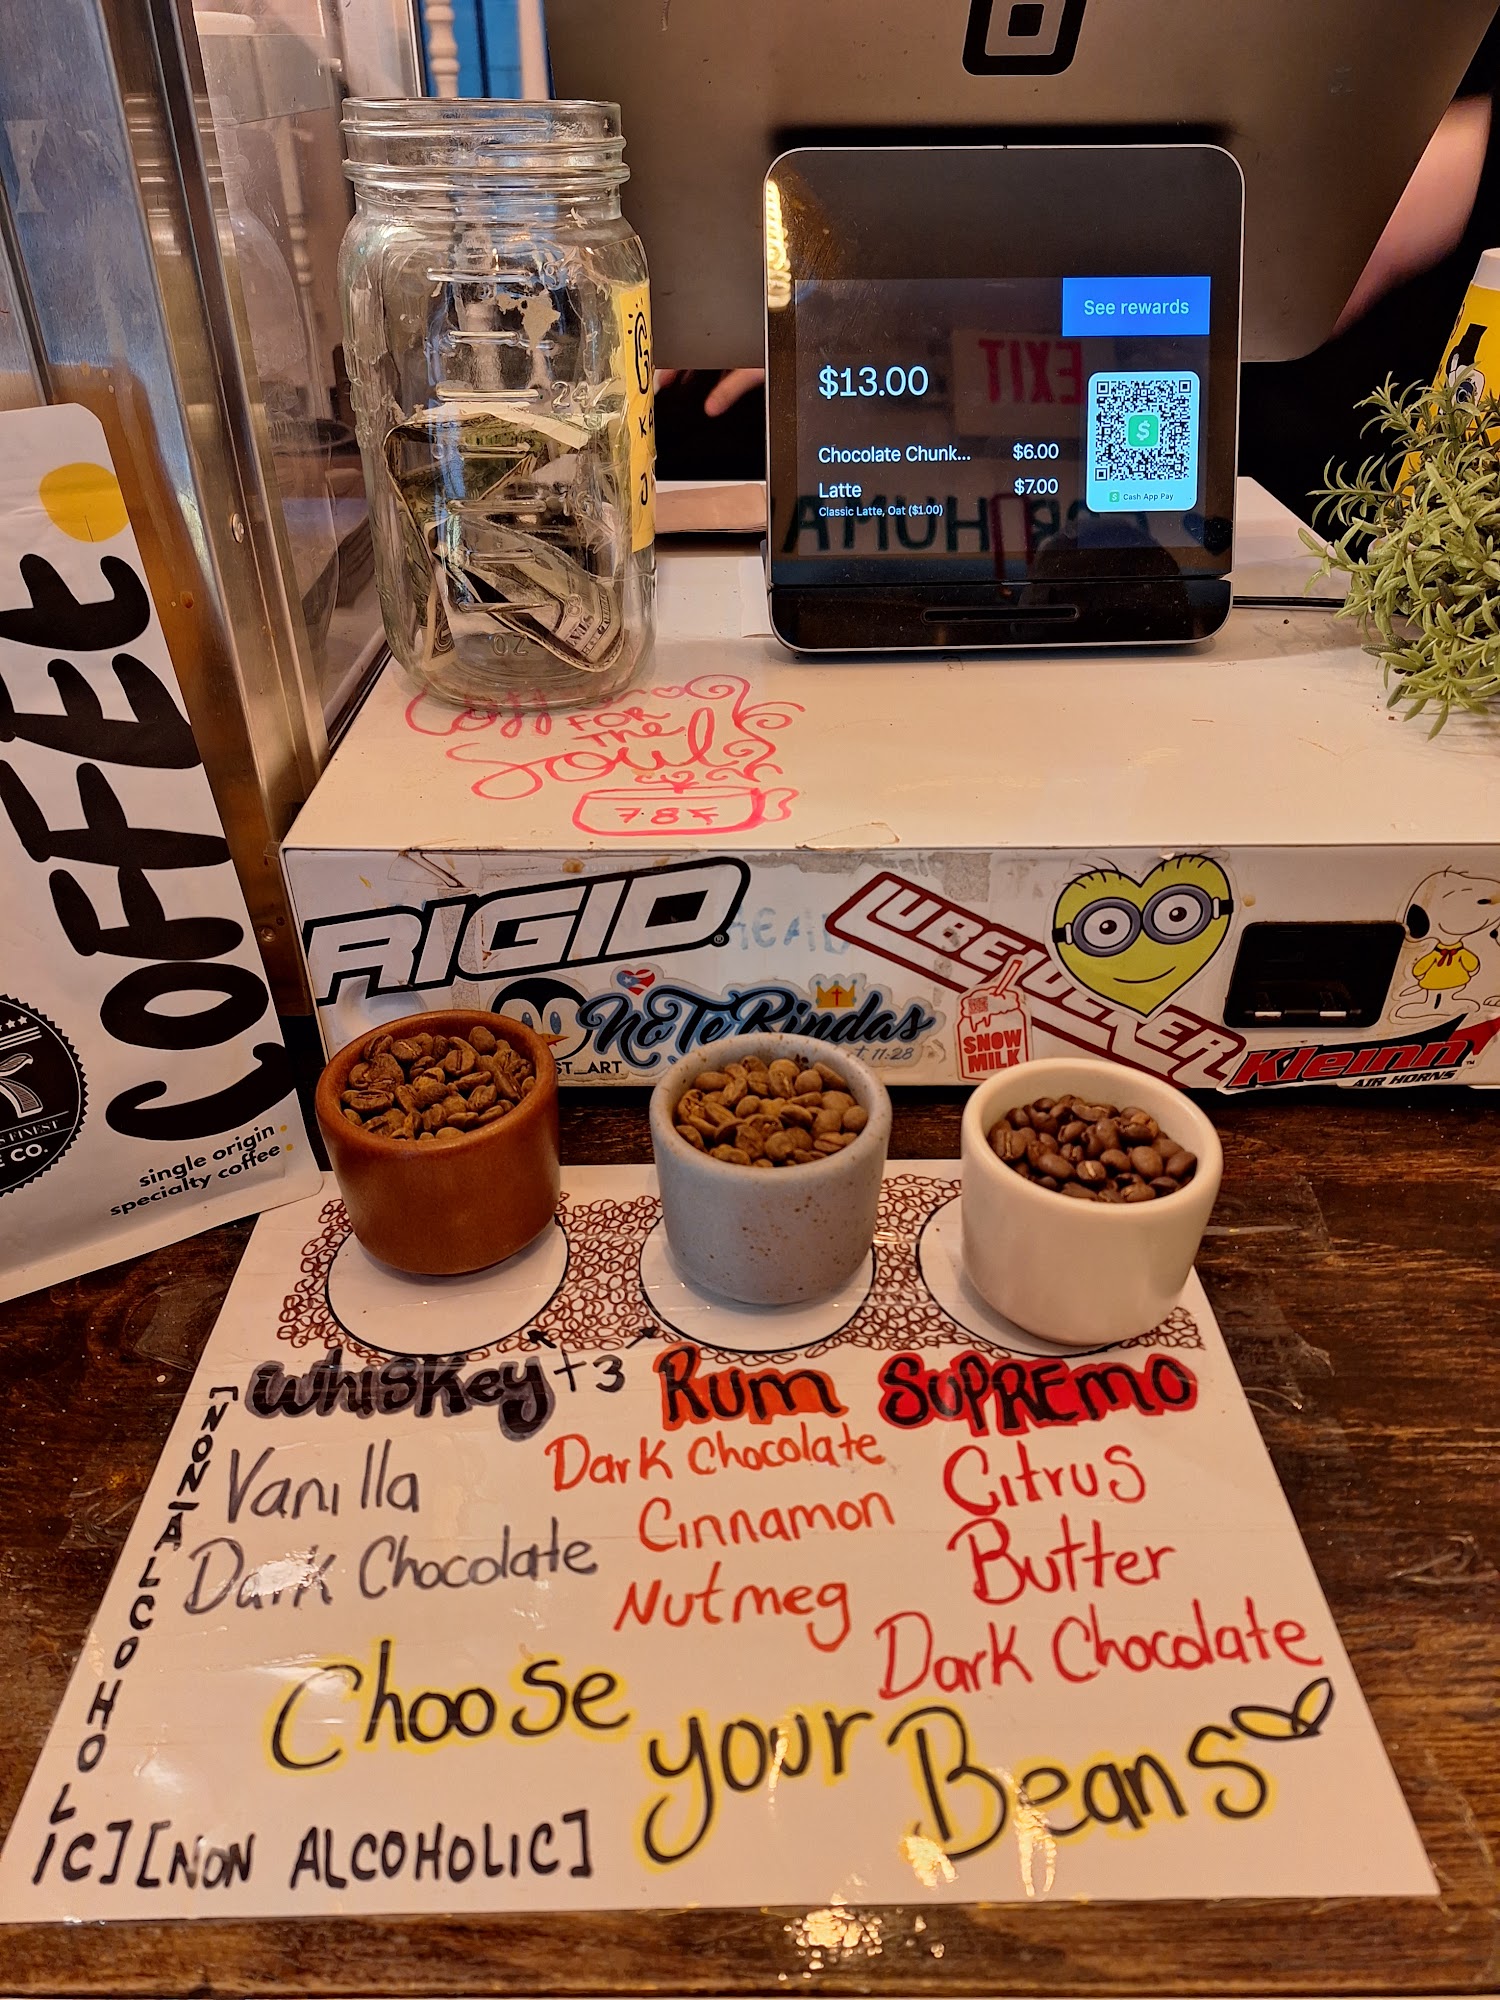 See rewards
$13.00
Chocolate Chunk... $6.00
Latte $7.00
Classic Latte, Oat ($1.00)
Cash App Pay
EXIT
HUMA
24
OZ
COFFEE.
single origin
specialty coffee
FINEST
E CO.
Coffee
FOR
The
Soul
787
RIGID
LUBE
NoTeRindas
11:28
ST_ART
SNOW
MILK
Kleinn
AIR HORNS
Whiskey +3 Rum SUPREMO
Vanilla
Dark Chocolate
Dark Chocolate
Cinnamon
Nutmeg
Citrus
Butter
Dark Chocolate
Choose your Beans
[NON-ALCOHOLIC] [NON ALCOHOLIC]